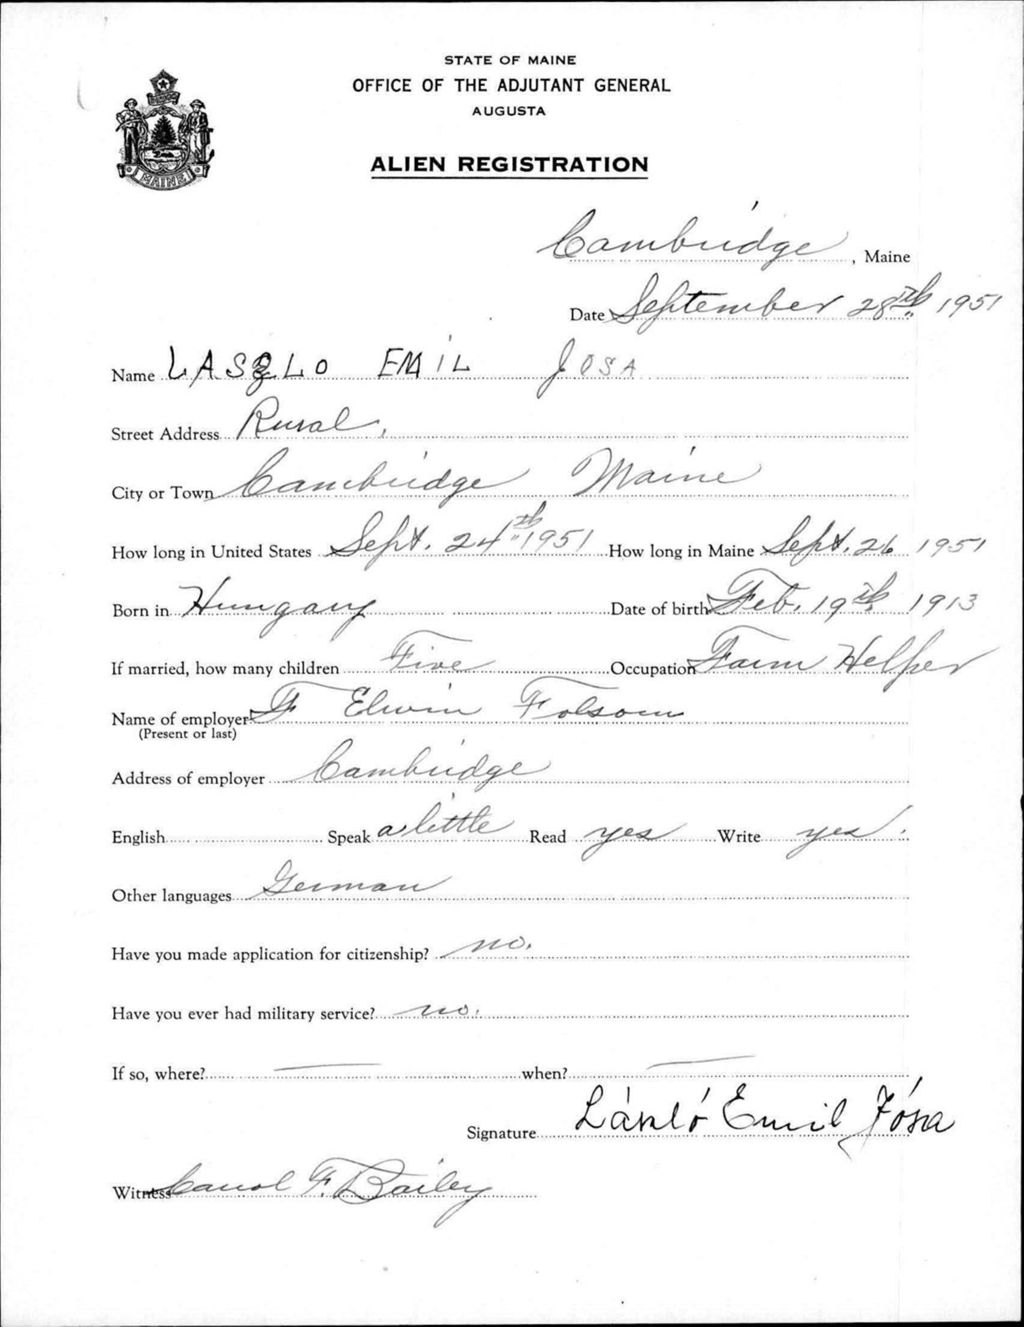 STATE OF MAINE
OFFICE OF THE ADJUTANT GENERAL
AUGUSTA
ALIEN REGISTRATION
MAINE
Cambridge, Maine
Date September 28th 1951
Name LASZLO EMIL JOSA
Street Address Rural,
City or Town Cambridge Maine
How long in United States Sept. 24th 1951 How long in Maine Sept. 26 1951
Born in Hungary Date of birth Feb. 19th 1913
If married, how many children Five Occupation Farm Helper
Name of employer F Elwin Folsom
(Present or last)
Address of employer Cambridge
English Speak a little Read yes Write yes.
Other languages German
Have you made application for citizenship? no.
Have you ever had military service? no.
If so, where? — when? —
Signature László Emil Jósa
Witness Carrol F. Bailey